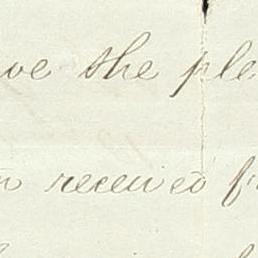 ve the ple
n received f